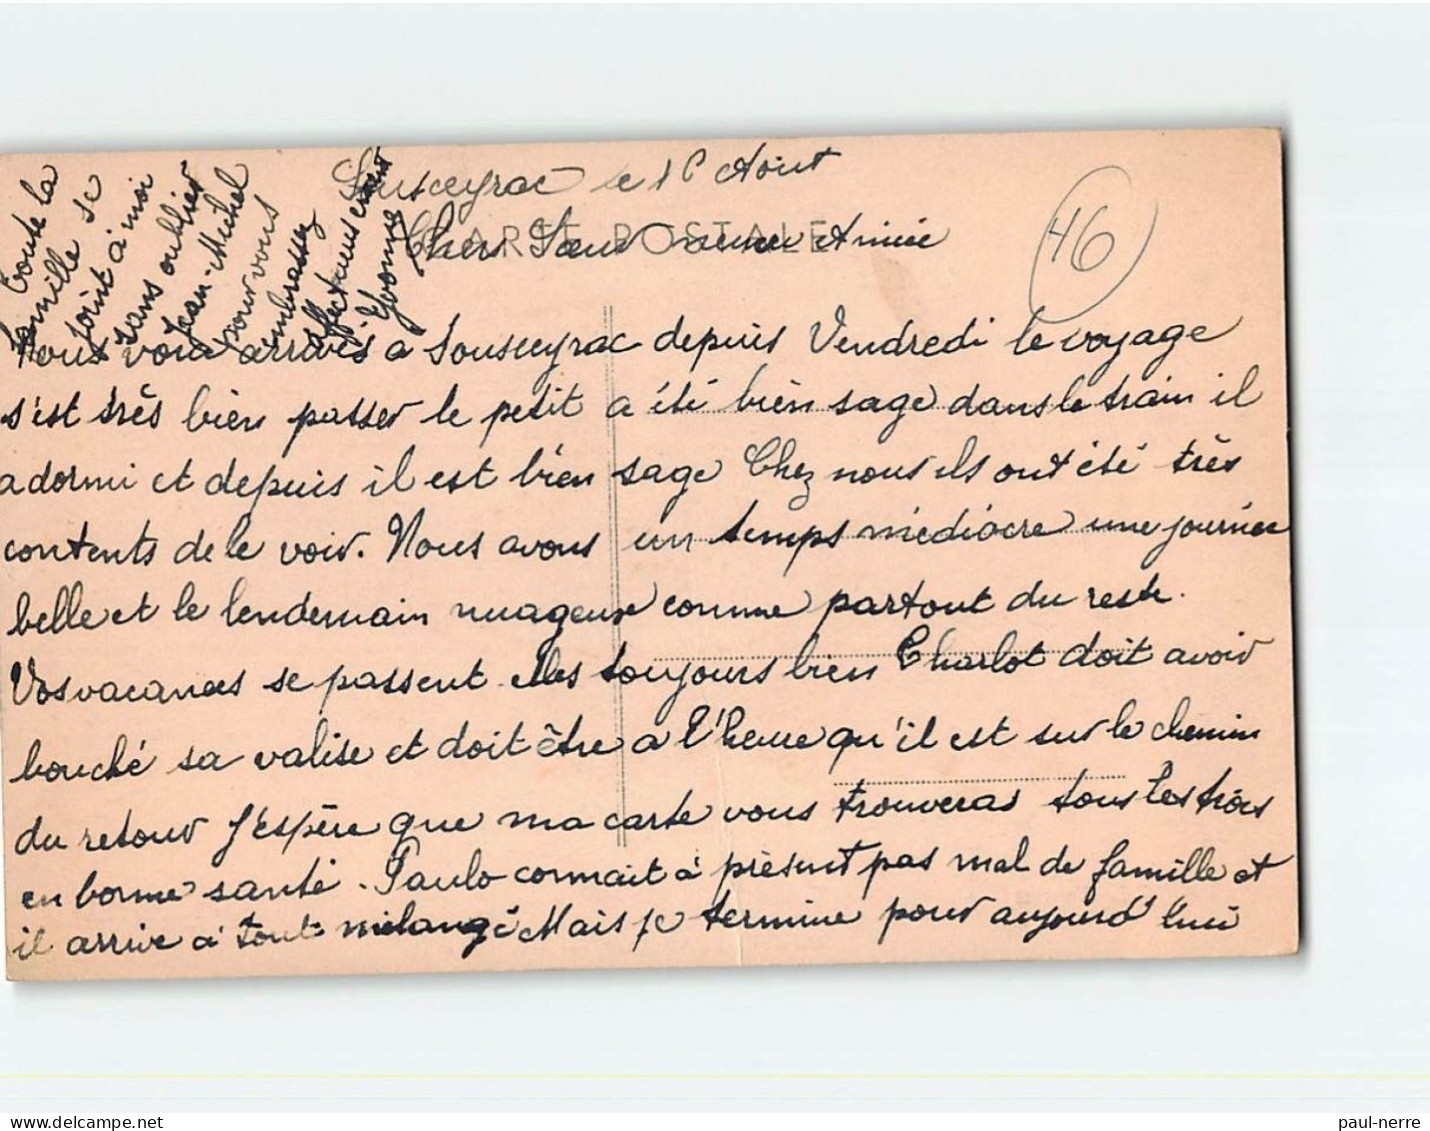 Sousceyrac le 16 Août
CARTE POSTALE
Cher Sœur neveu Aimée
46
Nous voici arrivés a Sousceyrac depuis Vendredi le voyage
s'est très bien passer le petit a été bien sage dans le train il
a dormi et depuis il est bien sage Chez nous ils ont été très
contents de le voir. Nous avons un temps médiocre une journée
belle et le lendemain nuageux comme partout du reste.
Vos vacances se passent elles toujours bien Charlot doit avoir
bouclé sa valise et doit être a l'heure qu'il est sur le chemin
du retour J'espère que ma carte vous trouveras tous les trois
en bonne santé. Paulo connait à présent pas mal de famille et
il arrive a tout mélangé Mais je termine pour aujourd'hui
Toute la
famille se
joint à moi
sans oublier
Jean-Michel
pour vous
embrassez
affectueusement
Yvonne
paul-nerre